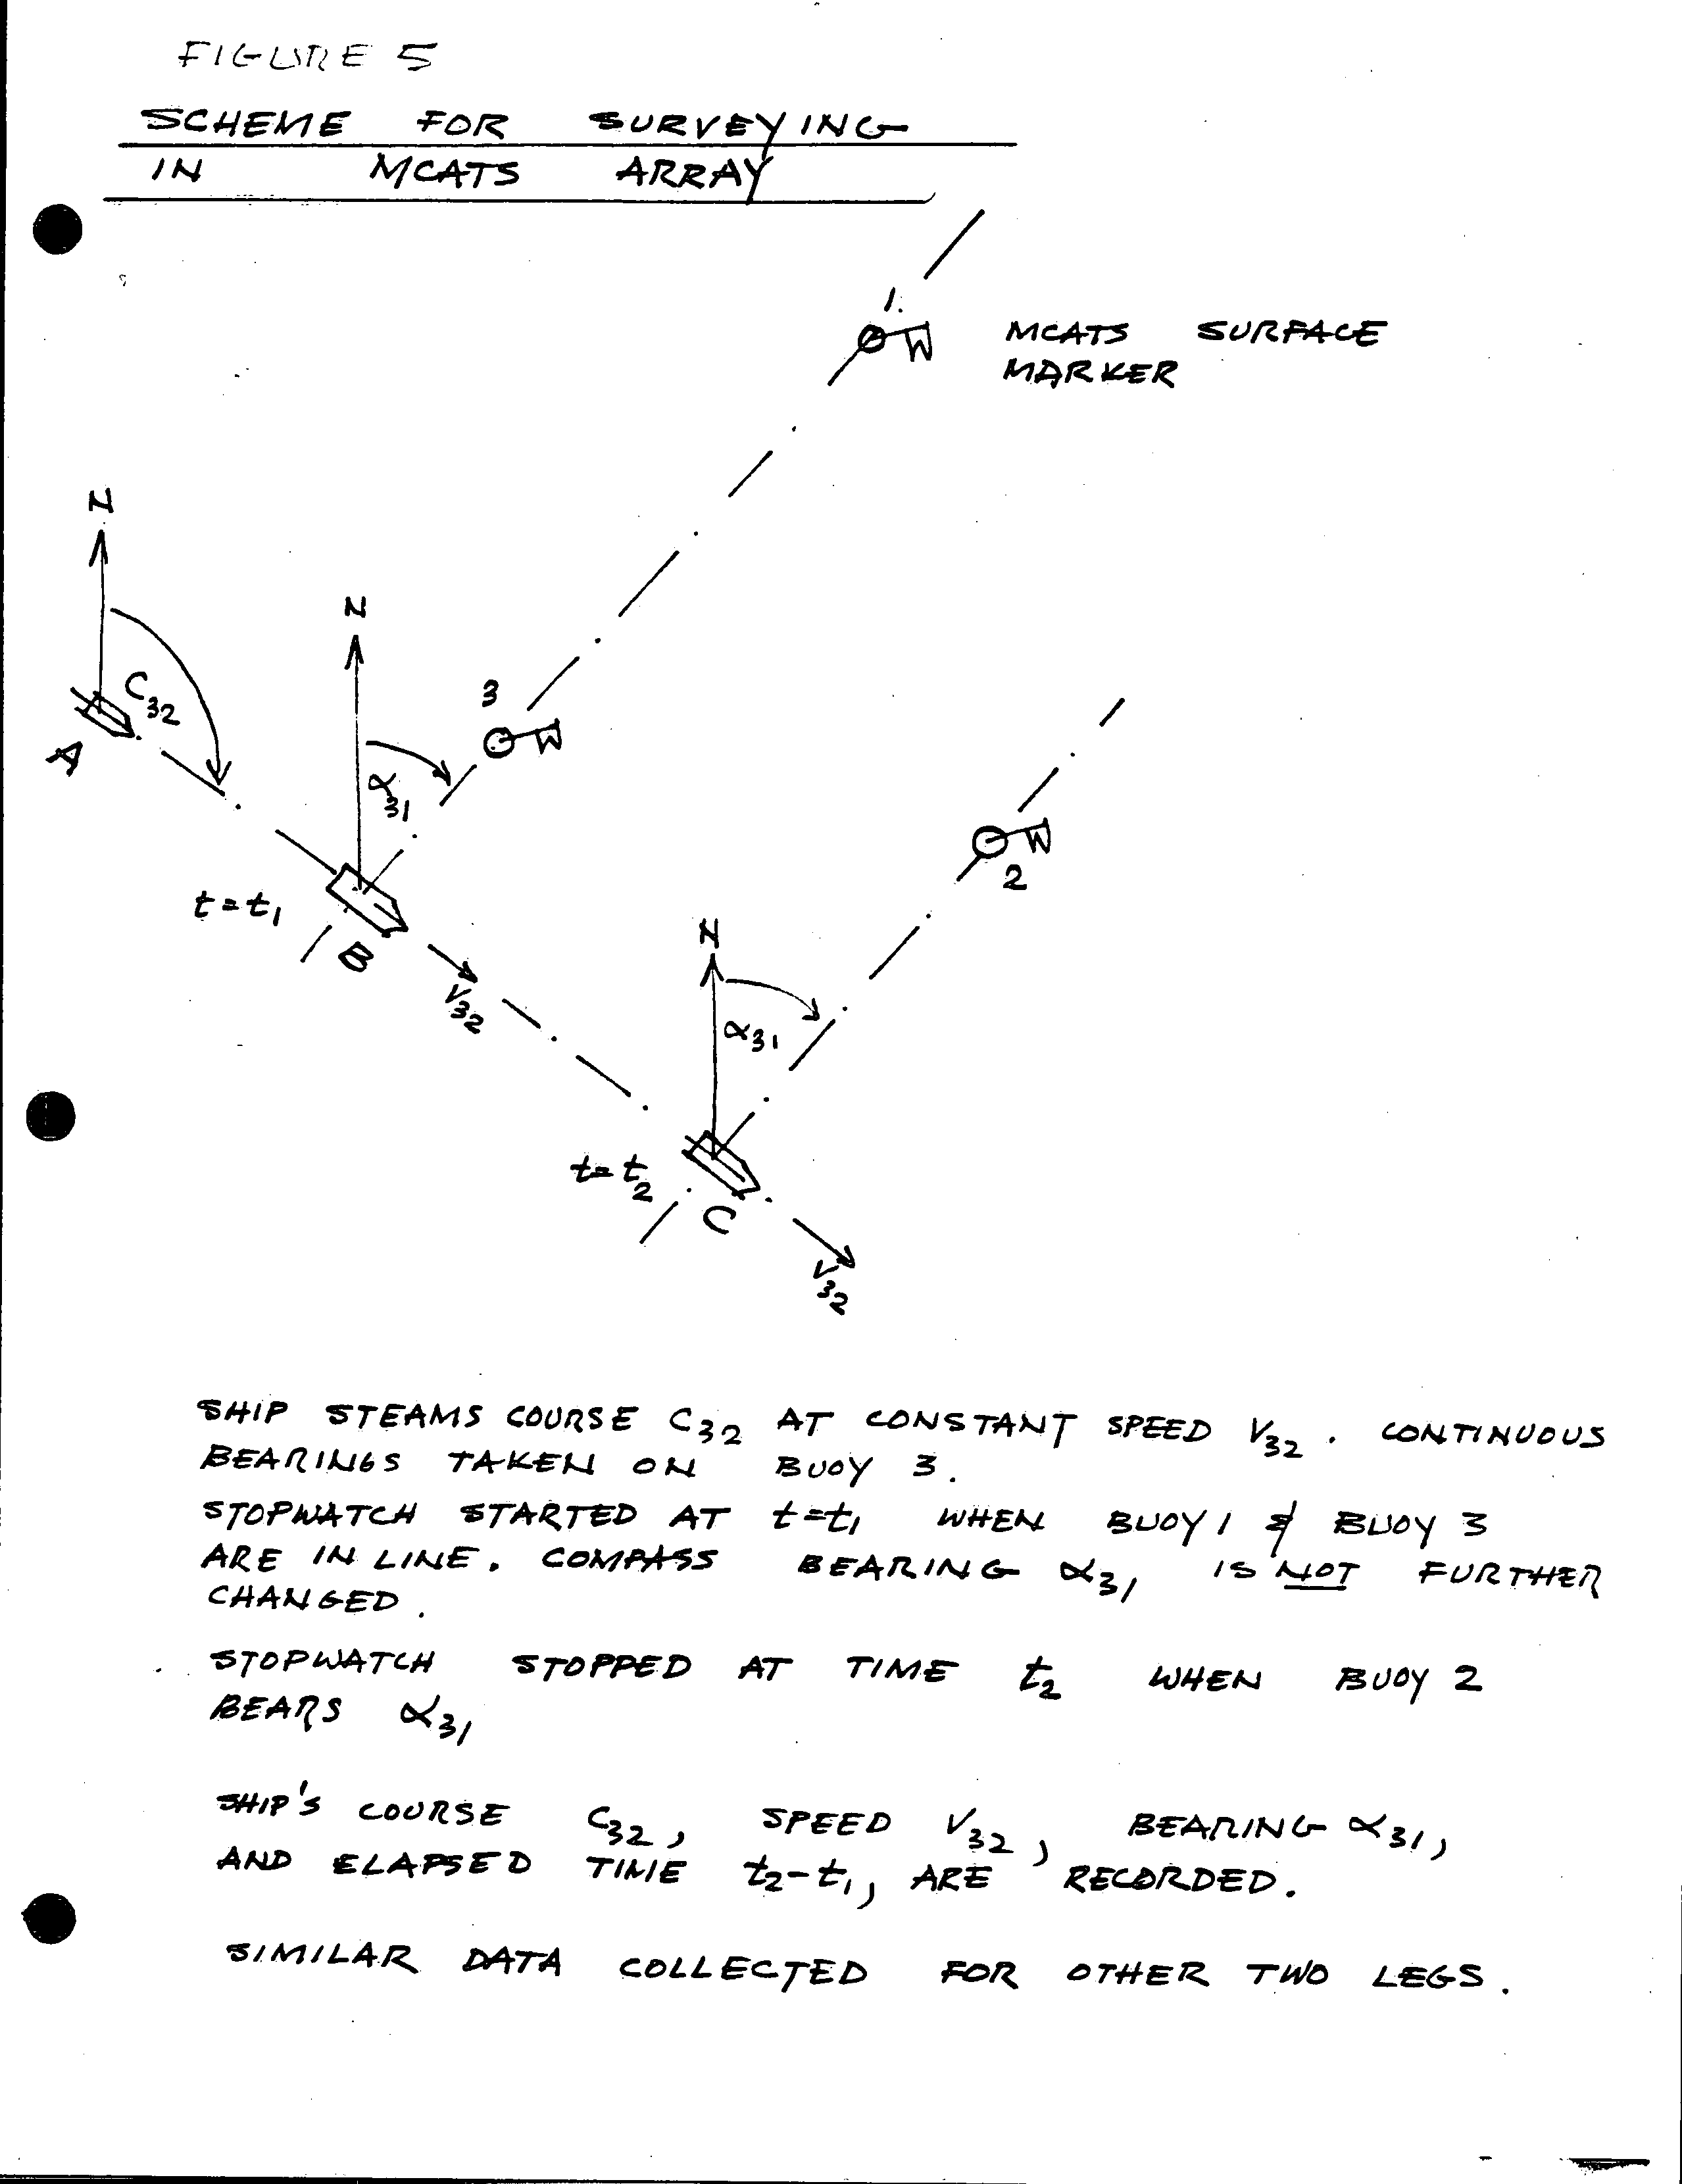 FIGURE 5
SCHEME FOR SURVEYING
IN MCATS ARRAY
1.
MCATS SURFACE
MARKER
N
N
C32
3
A
α31
t=t1
B
2
V32
N
α31
t=t2
C
V32
SHIP STEAMS COURSE C32 AT CONSTANT SPEED V32. CONTINUOUS
BEARINGS TAKEN ON BUOY 3.
STOPWATCH STARTED AT t=t1 WHEN BUOY 1 & BUOY 3
ARE IN LINE. COMPASS BEARING α31 IS NOT FURTHER
CHANGED.
STOPWATCH STOPPED AT TIME t2 WHEN BUOY 2
BEARS α31
SHIP'S COURSE C32, SPEED V32, BEARING α31,
AND ELAPSED TIME t2-t1, ARE RECORDED.
SIMILAR DATA COLLECTED FOR OTHER TWO LEGS.